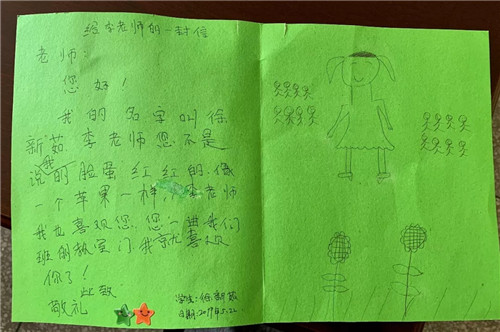 给李老师的一封信
老师:
您好!
我的名字叫徐
新茹李老师您不是
说我的脸蛋红红的,像
一个苹果一样,李老师
我也喜欢您,您一进我们
班的教室门,我就喜欢
你了!
此致
敬礼
学生:徐新茹
日期:2019.5.22.